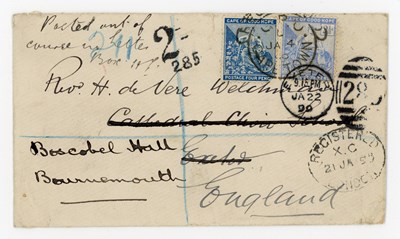 Posted out of
course in late
Box
2-
285
CAPE OF GOOD HOPE
POSTAGE FOUR PENCE
JA 4
Rev. H. de Vere Welchman
EXETER
9.15 PM
JA 22
99
285
Cathedral Choir School
REGISTERED
X.C
21 JA 99
Boscobel Hall
Exeter
Bournemouth
England